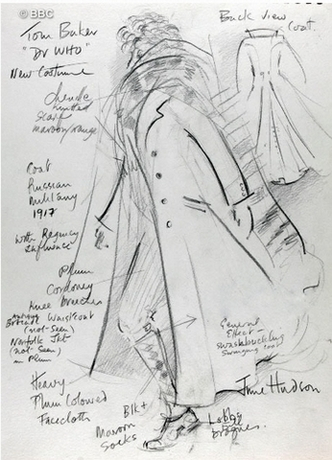 © BBC
Tom Baker
"Dr WHO"
New Costume
Back View
Coat.
Chenille
knitted
Scarf
maroon/orange
Coat
Russian
Military
1917
with Regency
influence
Plum
Corduroy
knee breeches
Waistcoat
(not seen)
Norfolk Jkt
(not seen)
in Plum
Heavy
Plum Coloured
Facecloth
Blk +
Maroon
Socks
General
Effect –
swashbuckling
swinging coat
June Hudson
brogues.